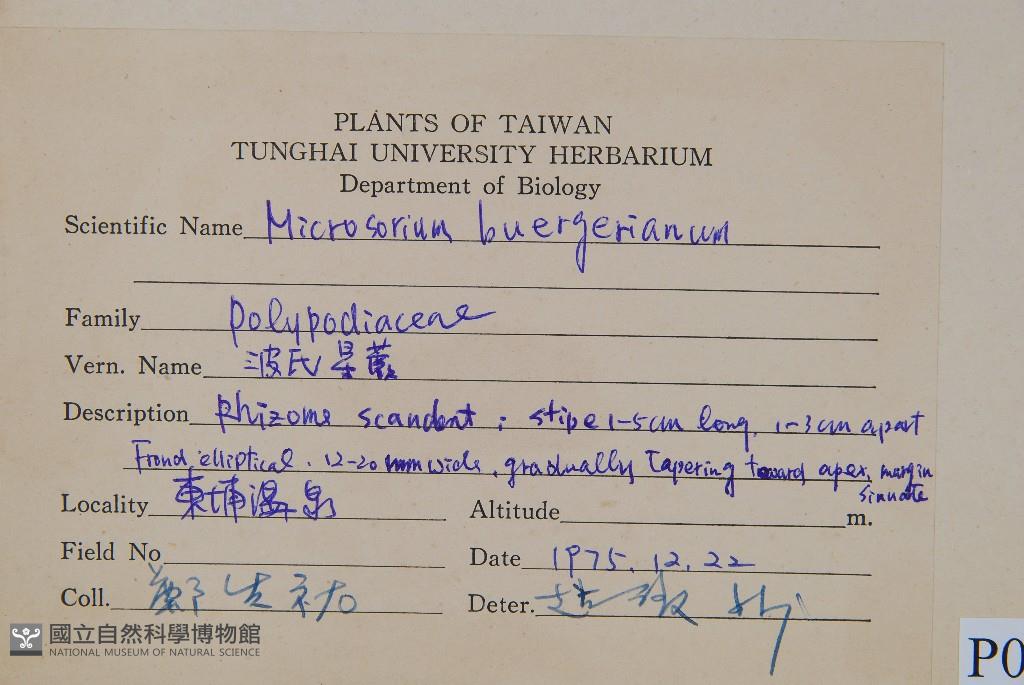 PLANTS OF TAIWAN
TUNGHAI UNIVERSITY HERBARIUM
Department of Biology
Scientific Name Microsorium buergerianum
Family polypodiaceae
Vern. Name 波氏星蕨
Description Rhizome scandent; stipe 1-5cm long, 1-3cm apart
Frond, elliptical. 12-20 mm wide, gradually Tapering toward apex, margin
sinuate
Locality 東埔温泉
Altitude m.
Field No
Date 1975.12.22
Coll. 鄭先祐
Deter.
國立自然科學博物館
NATIONAL MUSEUM OF NATURAL SCIENCE
P0